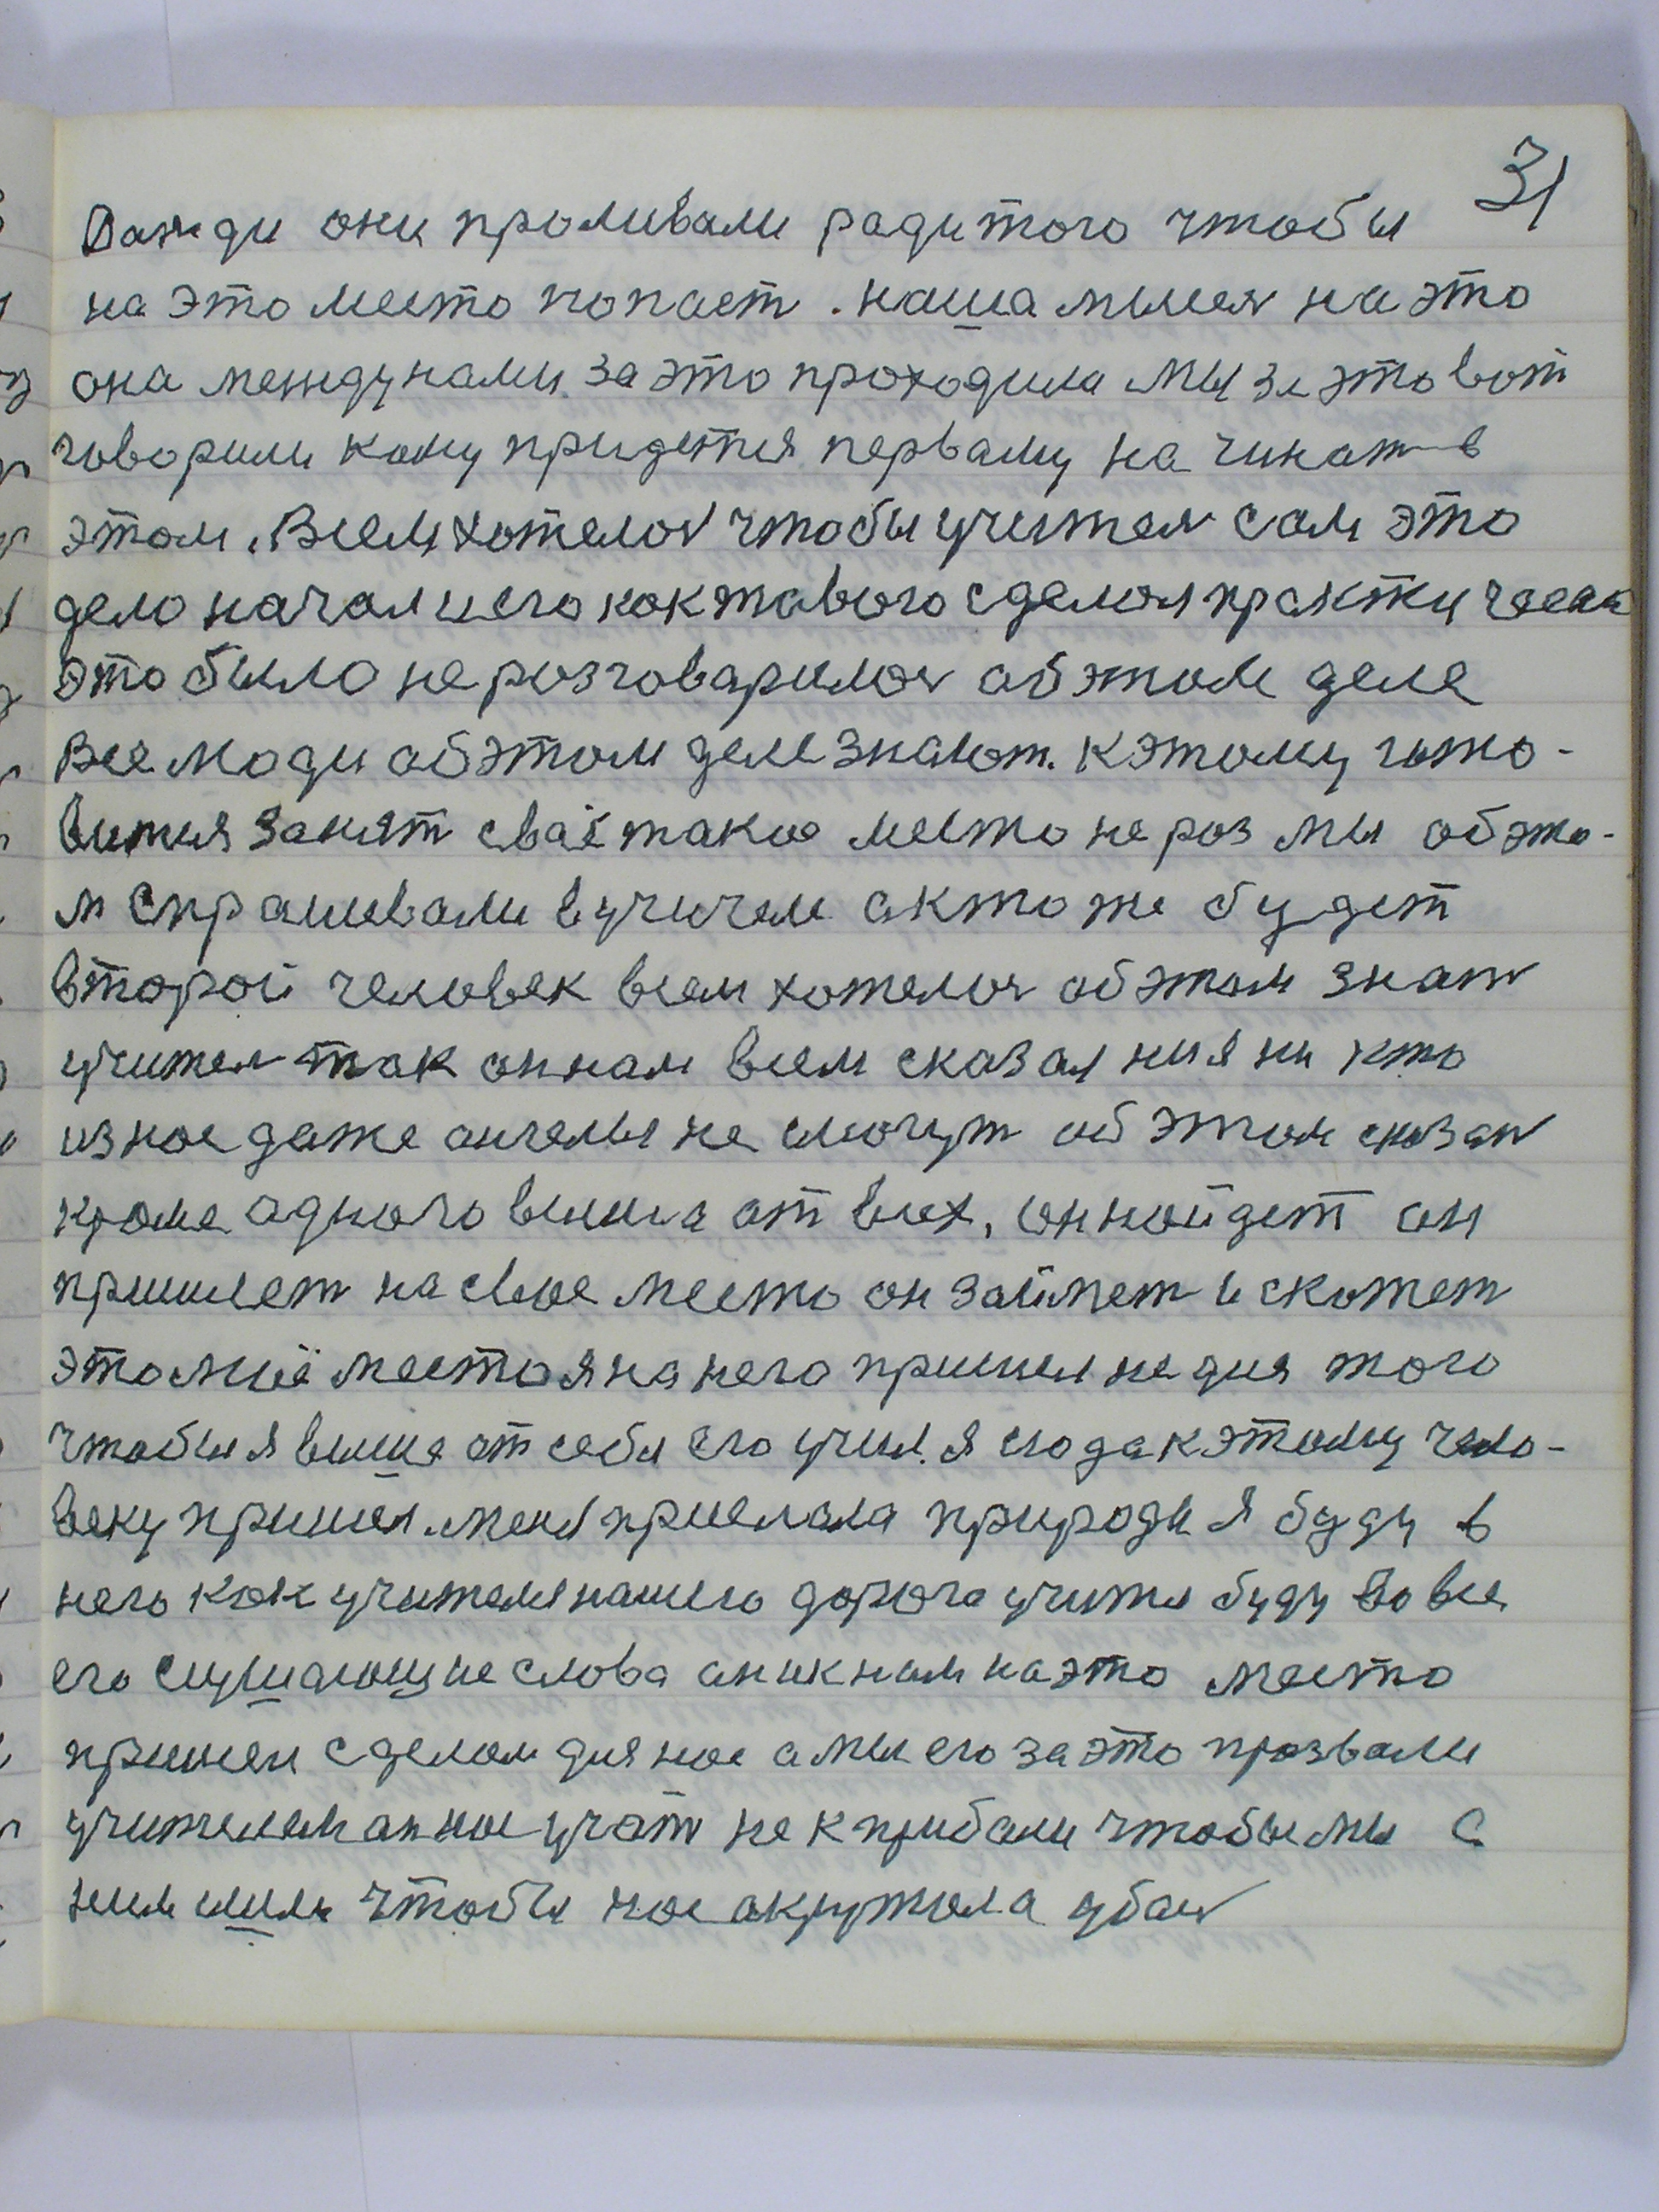 31
Дажди они проливали радитого чтобы
на это место попаст. наша мыслч на это
она междунами за это проходила мы за это вот
говорили кому придется первому на чинатъ в
этом. Всем хотелоч чтобы учителч сам это
дело начал и его как тавого сделал практически
это было не розговарилоч об этом деле
Все люди об этом деле знают. к этому гото-
вится занят сваё такое место не роз мы об это-
м спрашевали в учителе а кто же будет
второй человек всем хотелоч об этом знат
учител так он нам всем сказал ни я ни кто
из нос даже ангелы не смогут об этом сказат
кроме адного вышша от всех, он нойдет он
пришлет на свое место он займет и скожет
это моё место я на него пришел не для того
чтобы я выше от себя его учил. я сюда к этому чело-
веку пришел. меня прислала природы я буду в
него как учителя нашего дорога учитя буду во все
его слушающие слова он и к нам на это место
пришел с делом для нос а мы его за это прозвали
учителем он нос учат не к прибали чтобы мы с
ним шли чтобы нос окружола